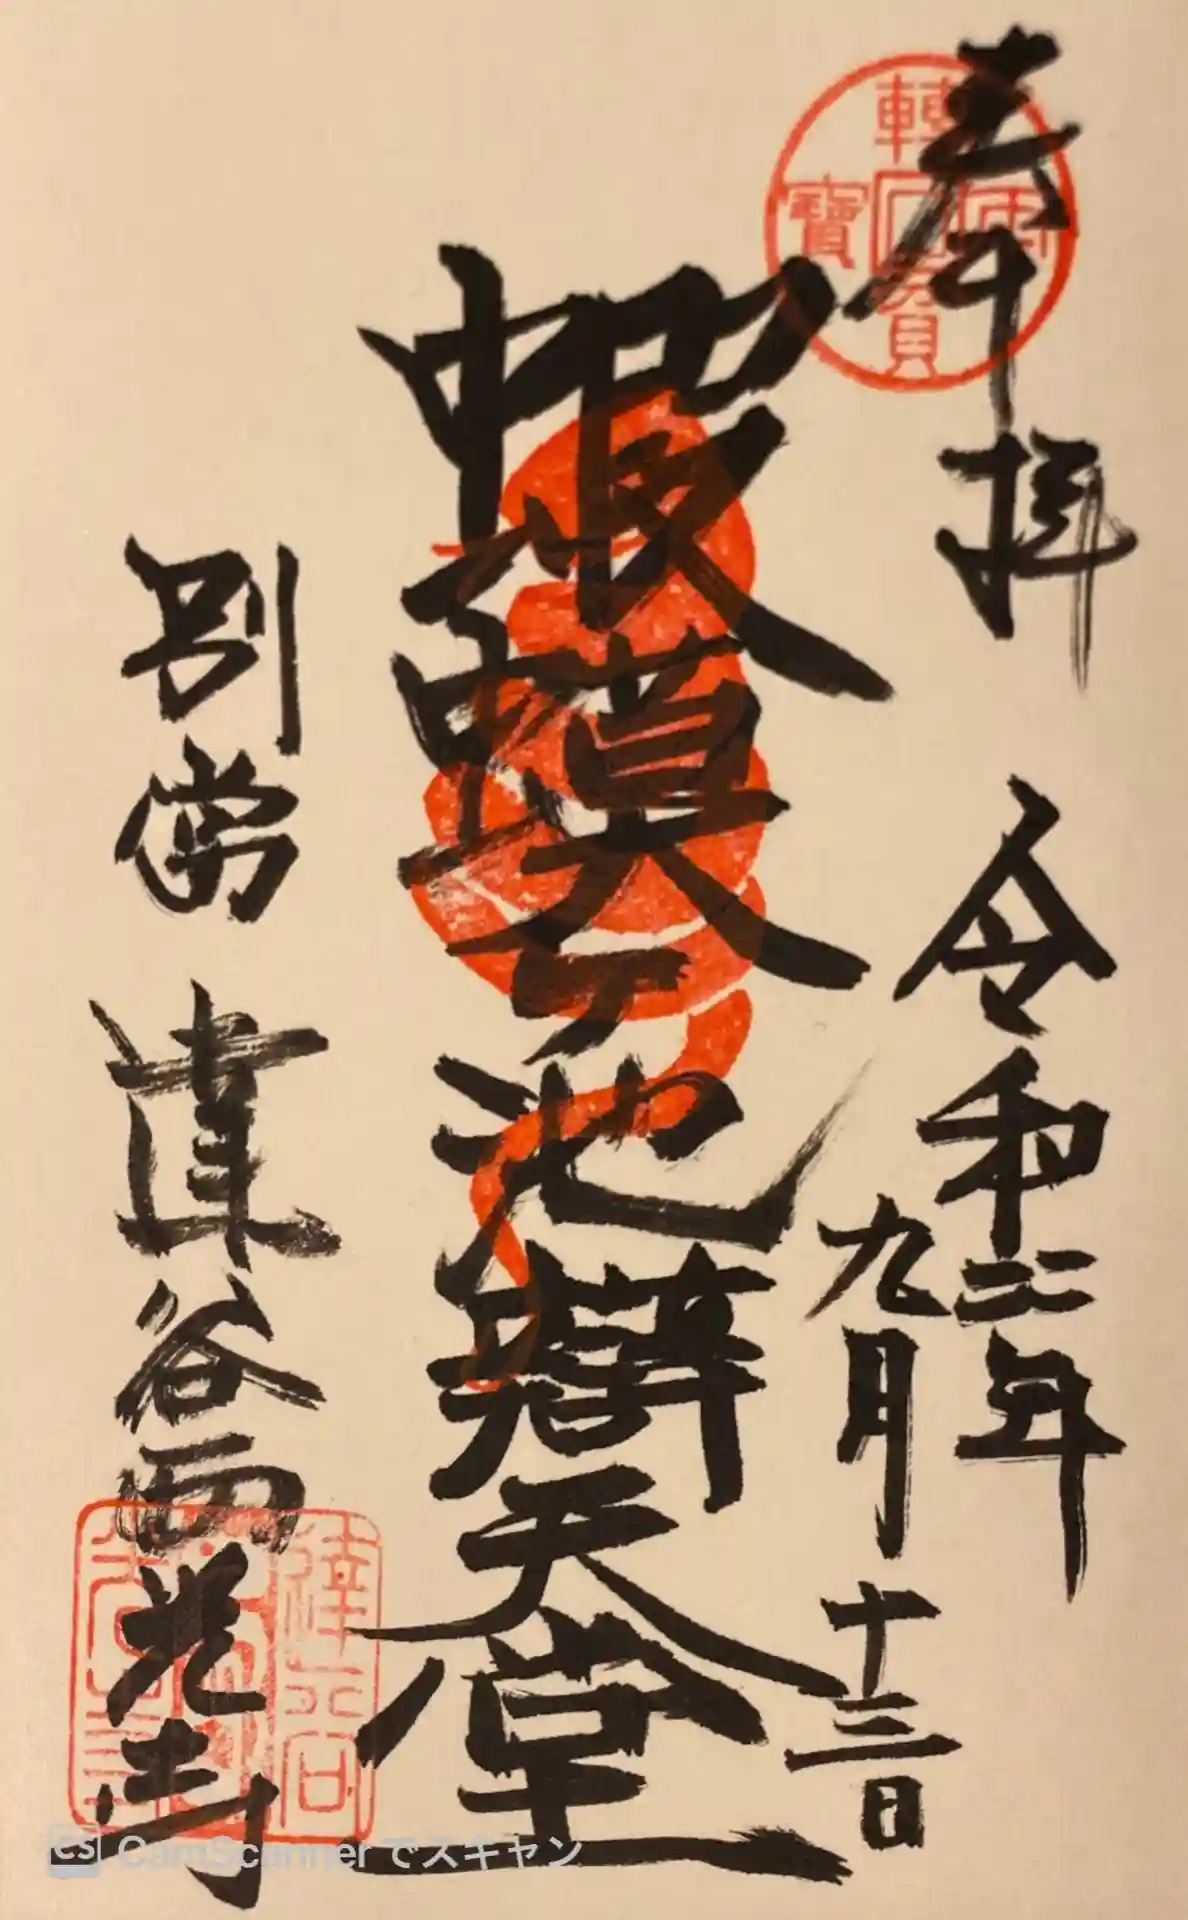 奉拝 令和二年
九月十三日
蝦蟆ヶ池辯天堂
別當 達谷西光寺
達谷
CS CamScannerでスキャン